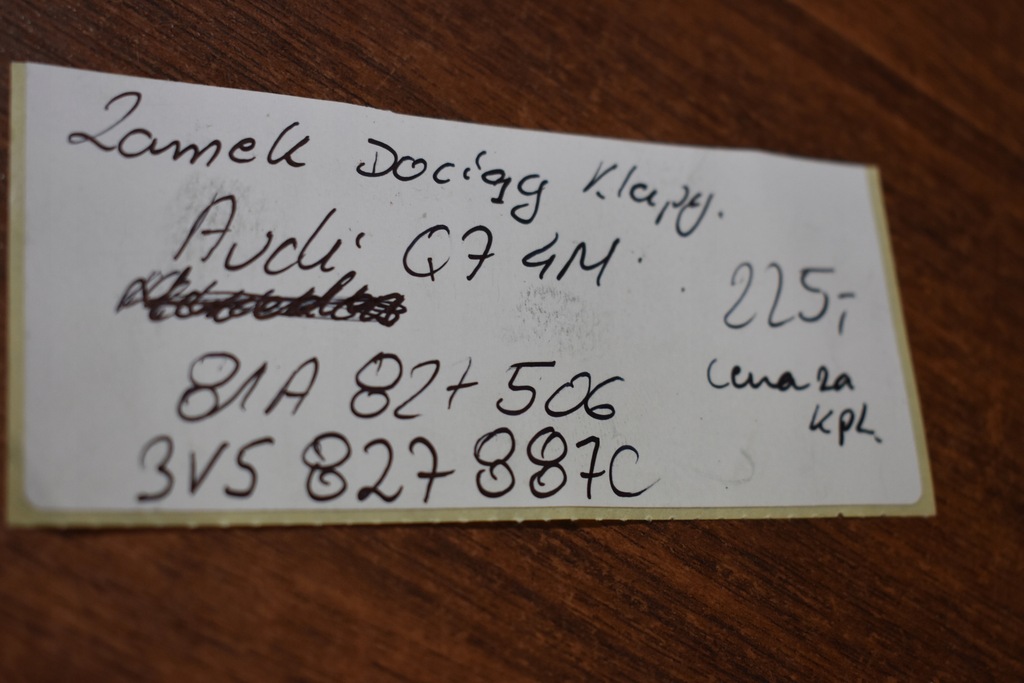 Zamek Dociąg Klapy.
Audi Q7 4M.
225,-
81A 827 506
cena za
kpl.
3V5 827 887C